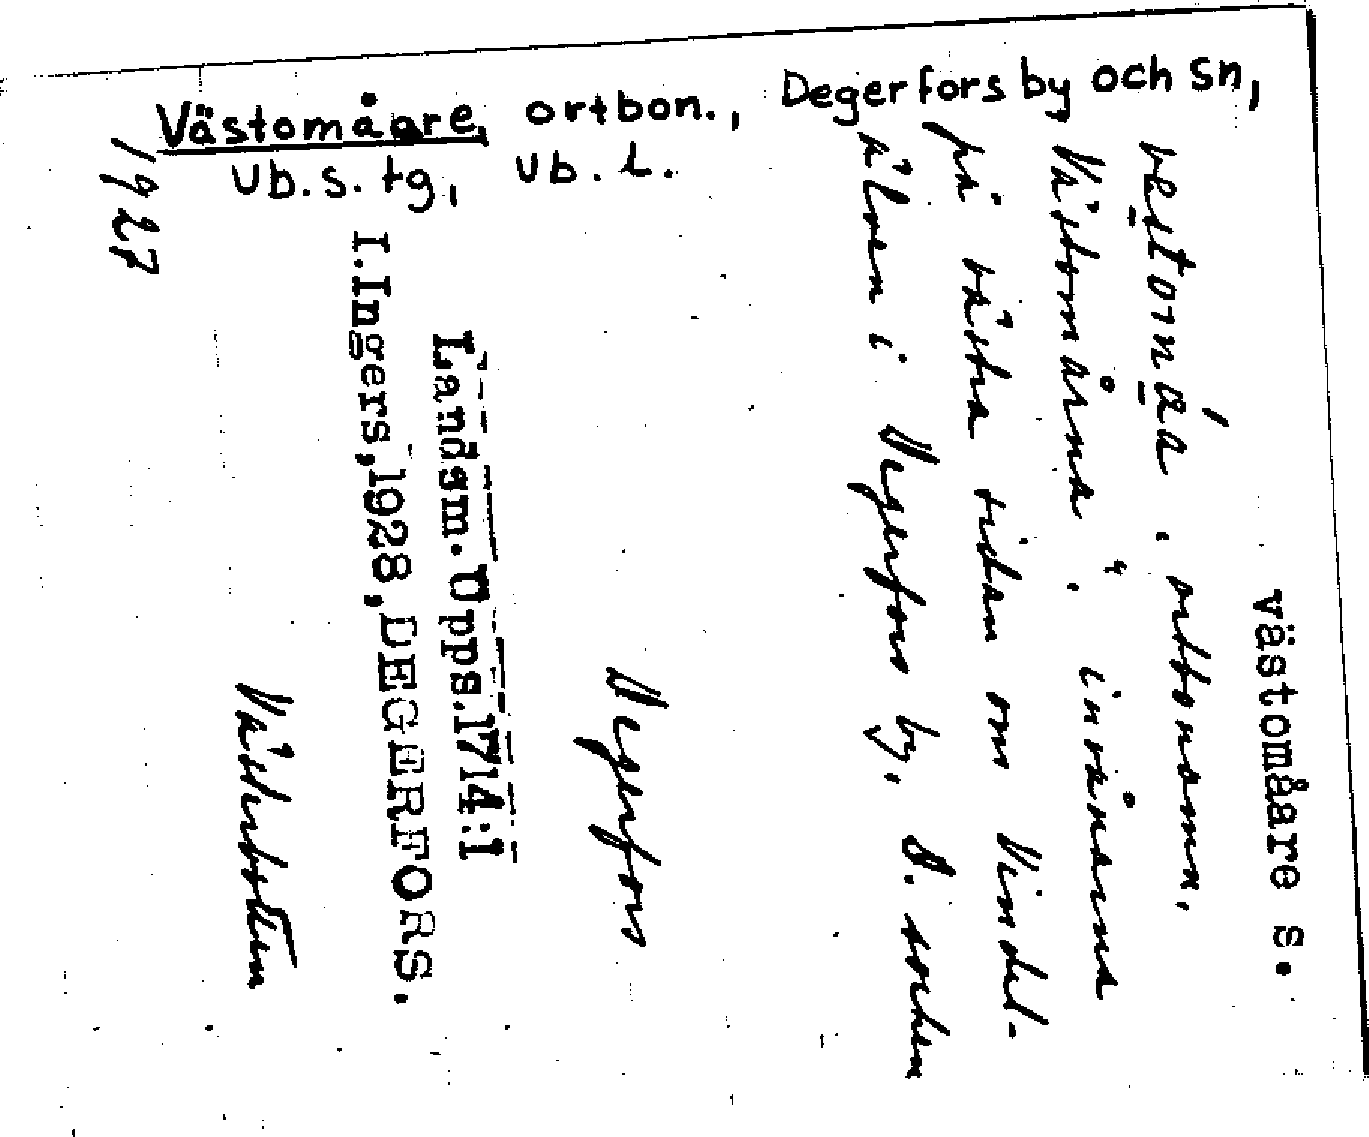 Västomåare, ortbon., Degerfors by och sn,
Vb. s. tg, Vb. l.
västomåare s.
ortbonamn.
Västomårna", invånarna
på västra sidan om Vindel-
älven i Degerfors by, D. socken
Degerfors
Landsm. Upps. 1714:1
I.Ingers, 1928, DEGERFORS.
Västerbotten
1927